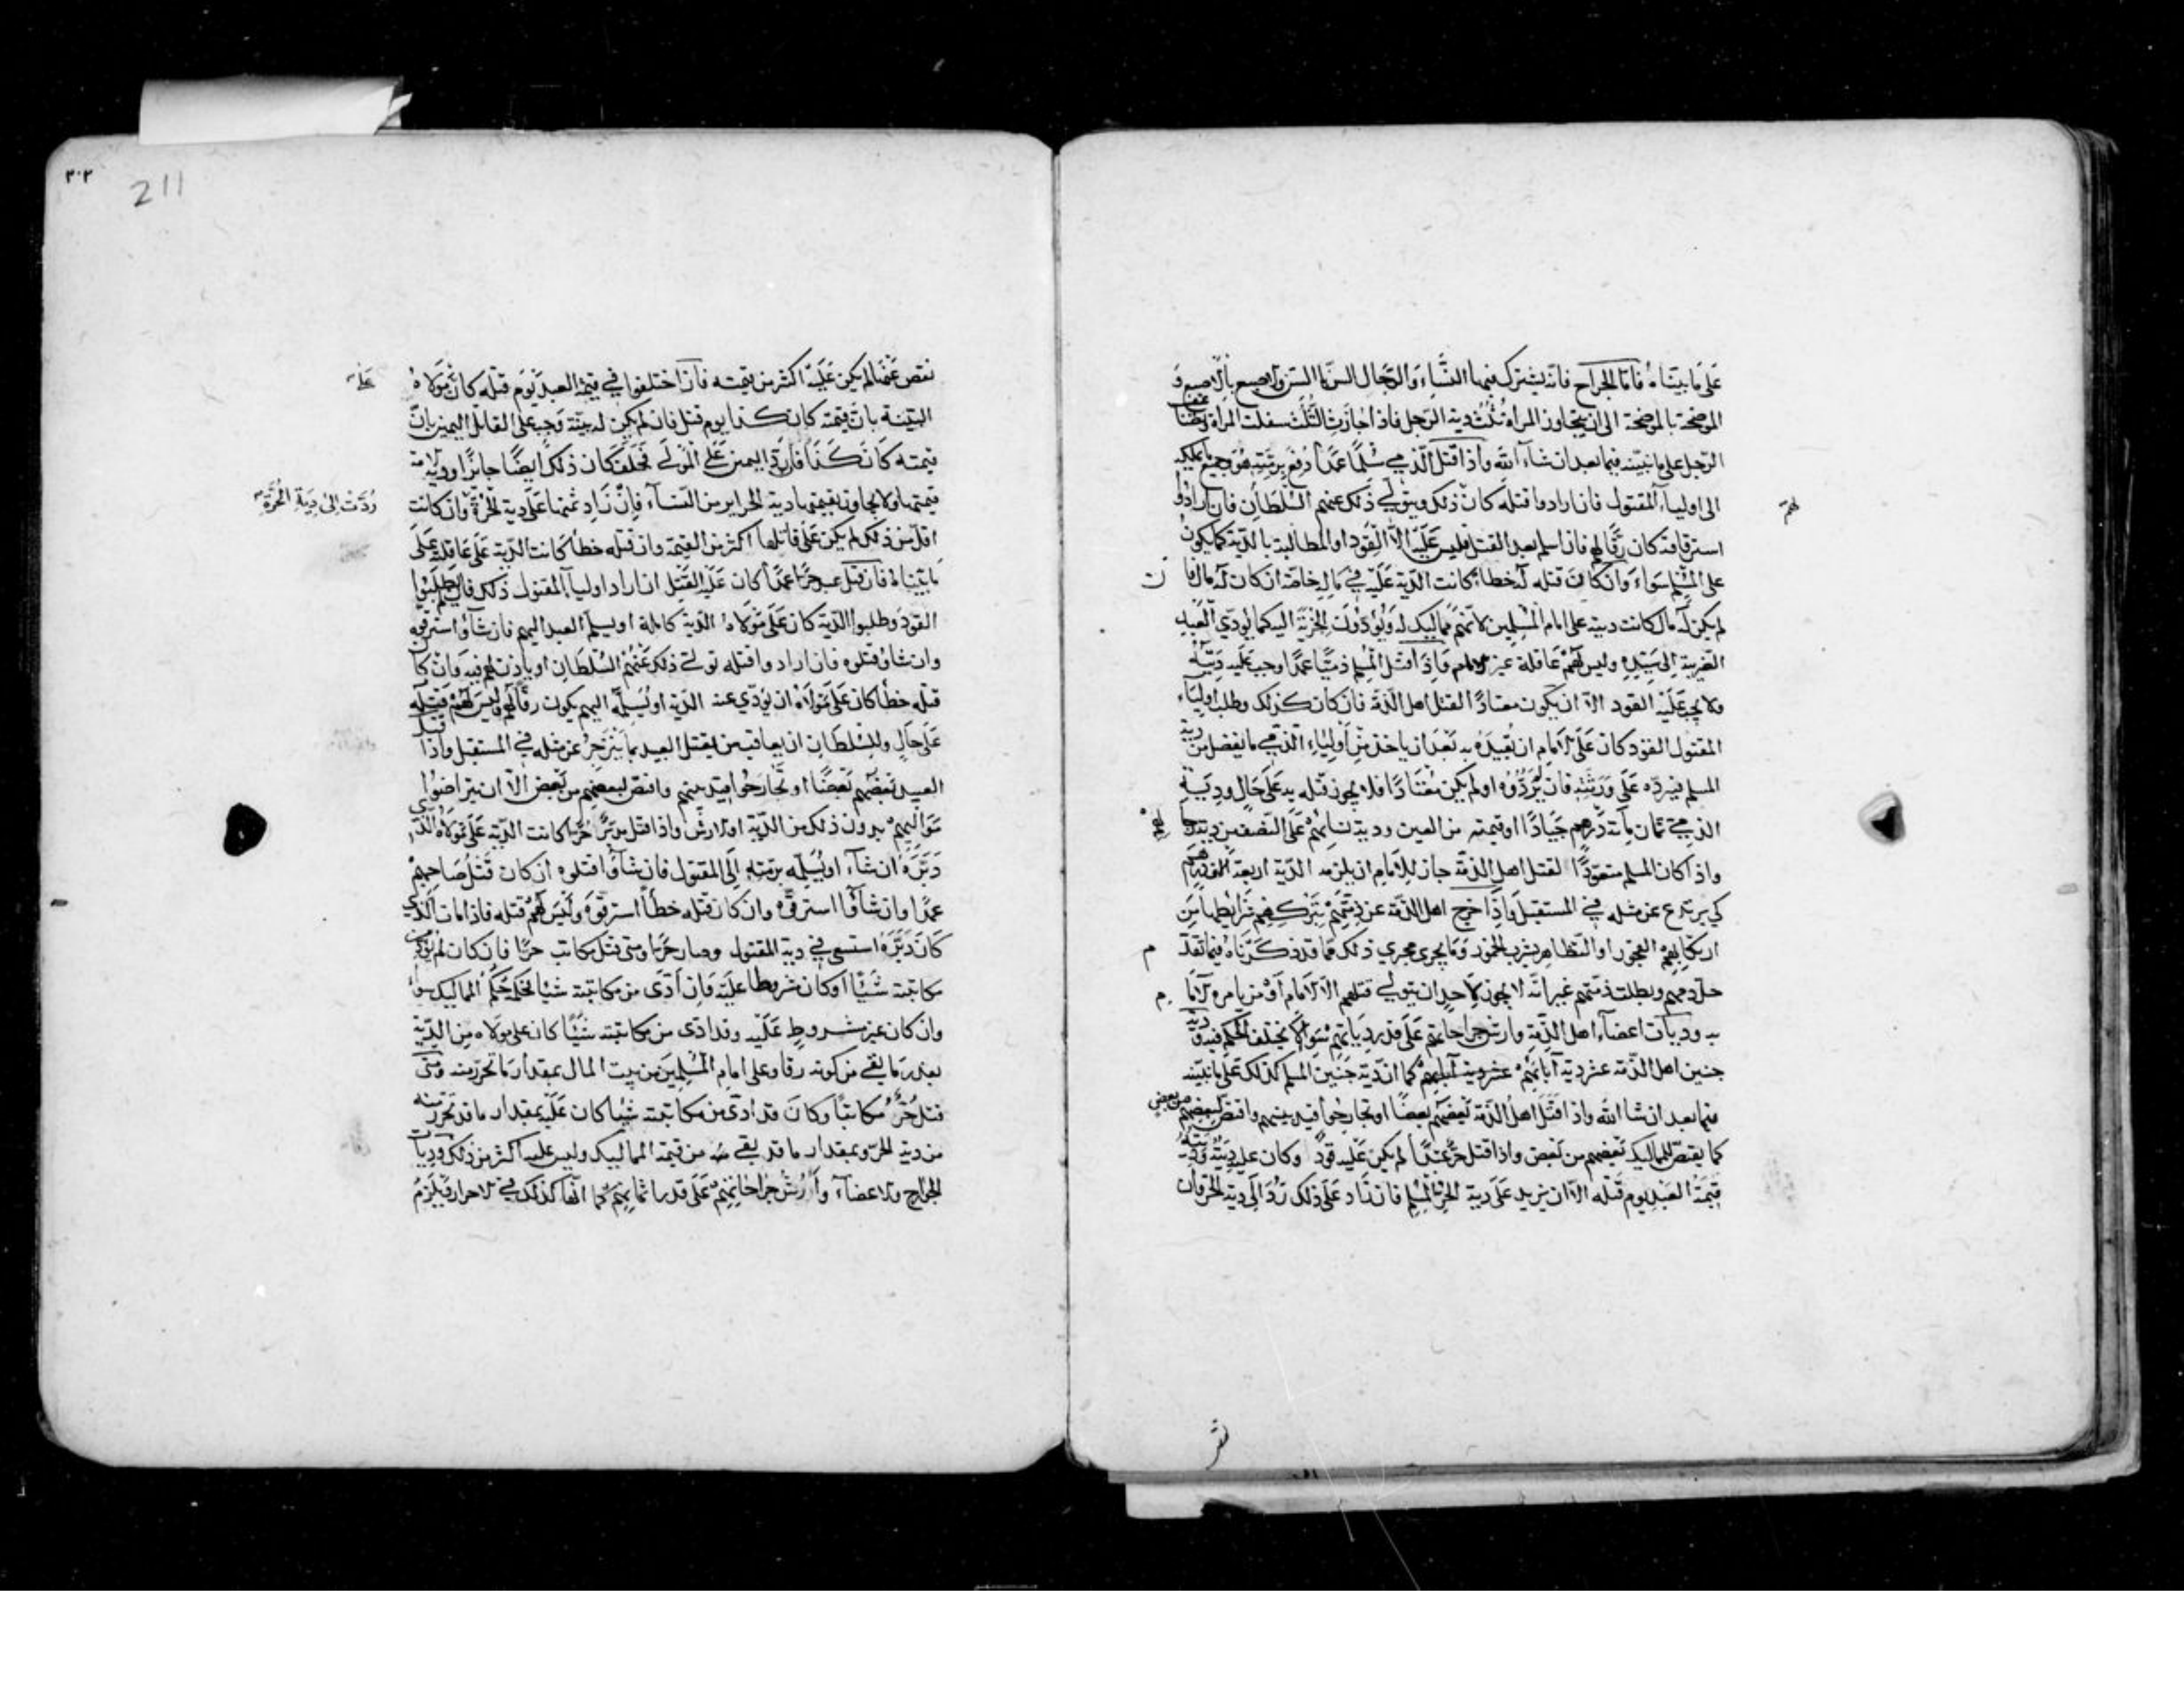 على ما بيناه فاما الجراح فانه يشترك فيها النساء والرجال السن بالسن والاصبع بالاصبع و
الموضحة بالموضحة الى ان يتجاوز المراة ثلث دية الرجل فاذا جازت الثلث سفلت المراة
الرجل على ما نبينه فيما بعد ان شاء الله واذا قتل الذمي مسلما عمدا دفع برمته هو وجميع ما يملكه
الى اولياء المقتول فان ارادوا قتله كان ذلك ويتولى ذلك عنهم السلطان فان ارادوا
لهم
استرقاقه كان رقا لهم فان اسلم بعد القتل فليس عليه الا القود او المطالبة بالدية كما يكون
على المسلم سواء وان كان قتله له خطأ كانت الدية عليه في ماله خاصة ان كان له مال فان
لم يكن له مال كانت ديته على امام المسلمين لانهم مماليك له ويؤدون الجزية اليه كما يؤدي العبد
الضريبة الى سيده وليس لهم عاقلة غير الامام واذا قتل المسلم ذميا عمدا وجب عليه ديته
ولا يجب عليه القود الا ان يكون معتادا لقتل اهل الذمة فان كان كذلك وطلب اولياء
المقتول القود كان على الامام ان يقيده به بعد ان ياخذ من اولياء الذمي ما يفضل من دية
المسلم فيرده على ورثته فان لم يردوه او لم يكن معتادا فلا يجوز قتله به على حال ودية
الذمي ثمان مائة درهم جيادا او قيمته من العين ودية نسائهم على النصف من دية رجالهم
واذا كان المسلم متعودا لقتل اهل الذمة جاز للامام ان يلزمه الدية اربعة الف درهم
كي يرتدع عن مثله في المستقبل واذا خرج اهل الذمة عن ذمتهم بتركهم شرايطها من
ارتكابهم الفجور او التظاهر بشرب الخمور وما يجري مجري ذلك مما قد ذكرناه فيما تقدم
حل دمهم وبطلت ذمتهم غير انه لا يجوز لاحد ان يتولى قتلهم الا الامام او من يامره الامام
به وديات اعضاء اهل الذمة وارش جراحاتهم على قدر دياتهم سواء لا يختلف الحكم فيه ودية
جنين اهل الذمة عشر دية آبائهم كما ان دية جنين المسلم كذلك على ما نبينه
فيما بعد ان شا الله واذا قتل اهل الذمة بعضهم بعضا او تجارحوا اقيد بينهم واقتص لبعضهم من بعض
كما يقتص للمماليك بعضهم من بعض واذا قتل حر عبدا لم يكن عليه قود وكان عليه ديته وديته
قيمة العبد يوم قتله الا ان يزيد على دية الحر المسلم فان زاد على ذلك رد الى دية الحر فان
نقص
٣٠٢
211
نقص عنها لم يكن عليه اكثر من قيمته فان اختلفوا في قيمة العبد يوم قتله كان على مولاه
البينة بان قيمته كان كذا يوم قتل فان لم يكن له بينة وجب على القاتل اليمين بان
قيمته كان كذا فان رد اليمين على المولى فحلف كان ذلك ايضا جائزا ودية الامة
قيمتها ولا يجاوز بقيمتها دية الحراير من النساء فان زاد ثمنها على دية الحرة وان كانت
ردت الى دية الحرة
اقل من ذلك لم يكن على قاتلها اكثر من القيمة وان قتله خطأ كانت الدية على عاقلته على
ما بيناه فان قتل عبد حرا عمدا كان عليه القتل ان اراد اولياء المقتول ذلك فان لم يطلبوا
القود وطلبوا الدية كان على مولاه الدية كاملة او يسلم العبد اليهم فان شاؤا استرقوه
وان شاؤا قتلوه فان ارادوا قتله تولى ذلك عنهم السلطان او ياذن لهم فيه وان كان
قتله خطأ كان على مولاه ان يؤدي عنه الدية او يسلمه اليهم يكون رقا لهم وليس لهم قتله
على حال وللسلطان ان يعاقب من يقتل العبيد بما ينزجر عن مثله في المستقبل واذا قتل
العبيد بعضهم بعضا او تجارحوا اقيد بينهم واقتص لبعضهم من بعض الا ان يتراضوا
مواليهم بدون ذلك من الدية او الارش واذا قتل مدبر حرا كانت الدية على مولاه الذي
دبره ان شاء او يسلمه برمته الى المقتول فان شاؤا قتلوه ان كان قتل صاحبهم
عمدا وان شاؤا استرقوه وان كان قتله خطأ استرقوه وليس لهم قتله فاذا مات الذي
كان دبره استسعي في دية المقتول وصار حرا ومتى قتل مكاتب حرا فان كان لم يؤد من
مكاتبته شيئا او كان شرط عليه فان ادى من مكاتبته شيئا فحكمه حكم المماليك سواء
وان كان غير مشروط عليه وقد ادى من مكاتبته شيئا كان على مولاه من الدية
بقدر ما بقي من كونه رقا وعلى امام المسلمين من بيت المال بمقدار ما تحرر منه ومتى
قتل حر مكاتبا وكان قد ادى من مكاتبته شيئا كان عليه بمقدار ما قد تحرر منه
من دية الحر وبمقدار ما قد بقي منه من قيمة المماليك وليس عليه اكثر من ذلك وديات
الجوارح والاعضاء وارش جراحاتهم على قدر اثمانهم كما انها كذلك في الاحرار ويلزم